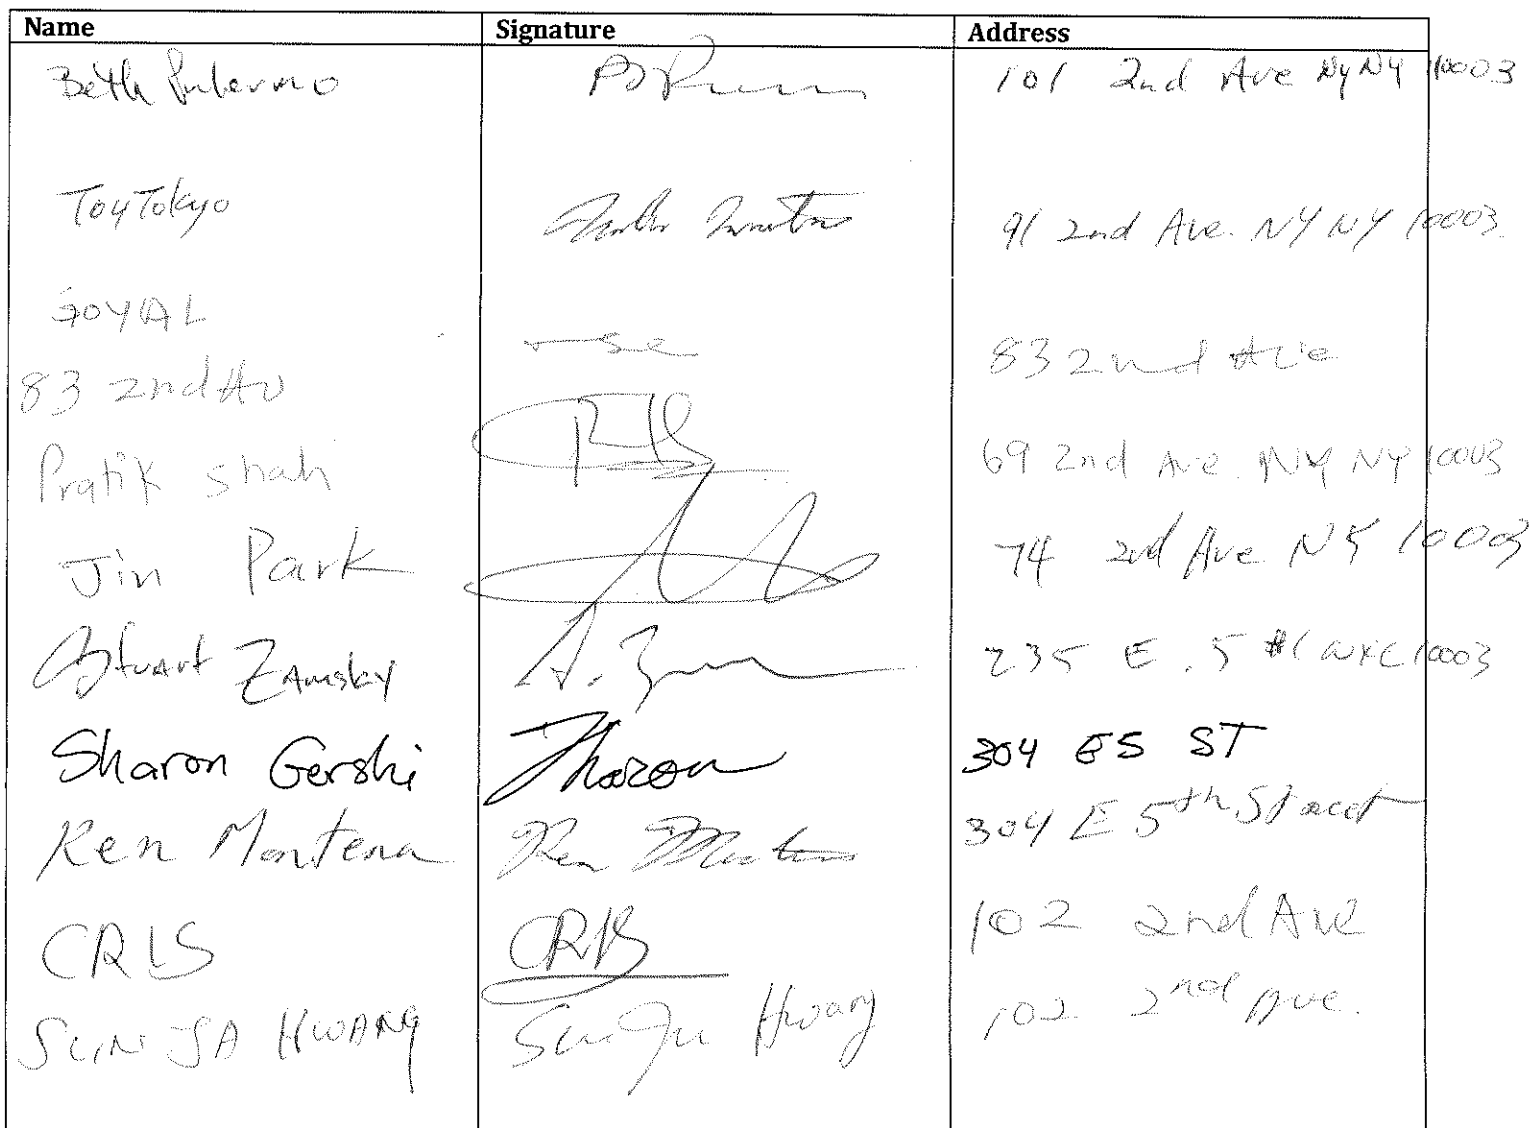 Name Signature Address
Beth Palermo 101 2nd Ave NY NY 10003
Toy Tokyo 91 2nd Ave. NY NY 10003
GOYAL
83 2nd Av 83 2nd Ave
Pratik shah 69 2nd Ave. NY NY 10003
Jin Park 74 2nd Ave NY 10003
Stuart Zamsky 235 E. 5 #1 NYC 10003
Sharon Gershi Sharon 304 E5 ST
Ken Montena Ken 304 E 5th Street
CRIS CRIS 102 2nd Ave
SUN JA HWANG Sun Ja Hwang 102 2nd Ave.